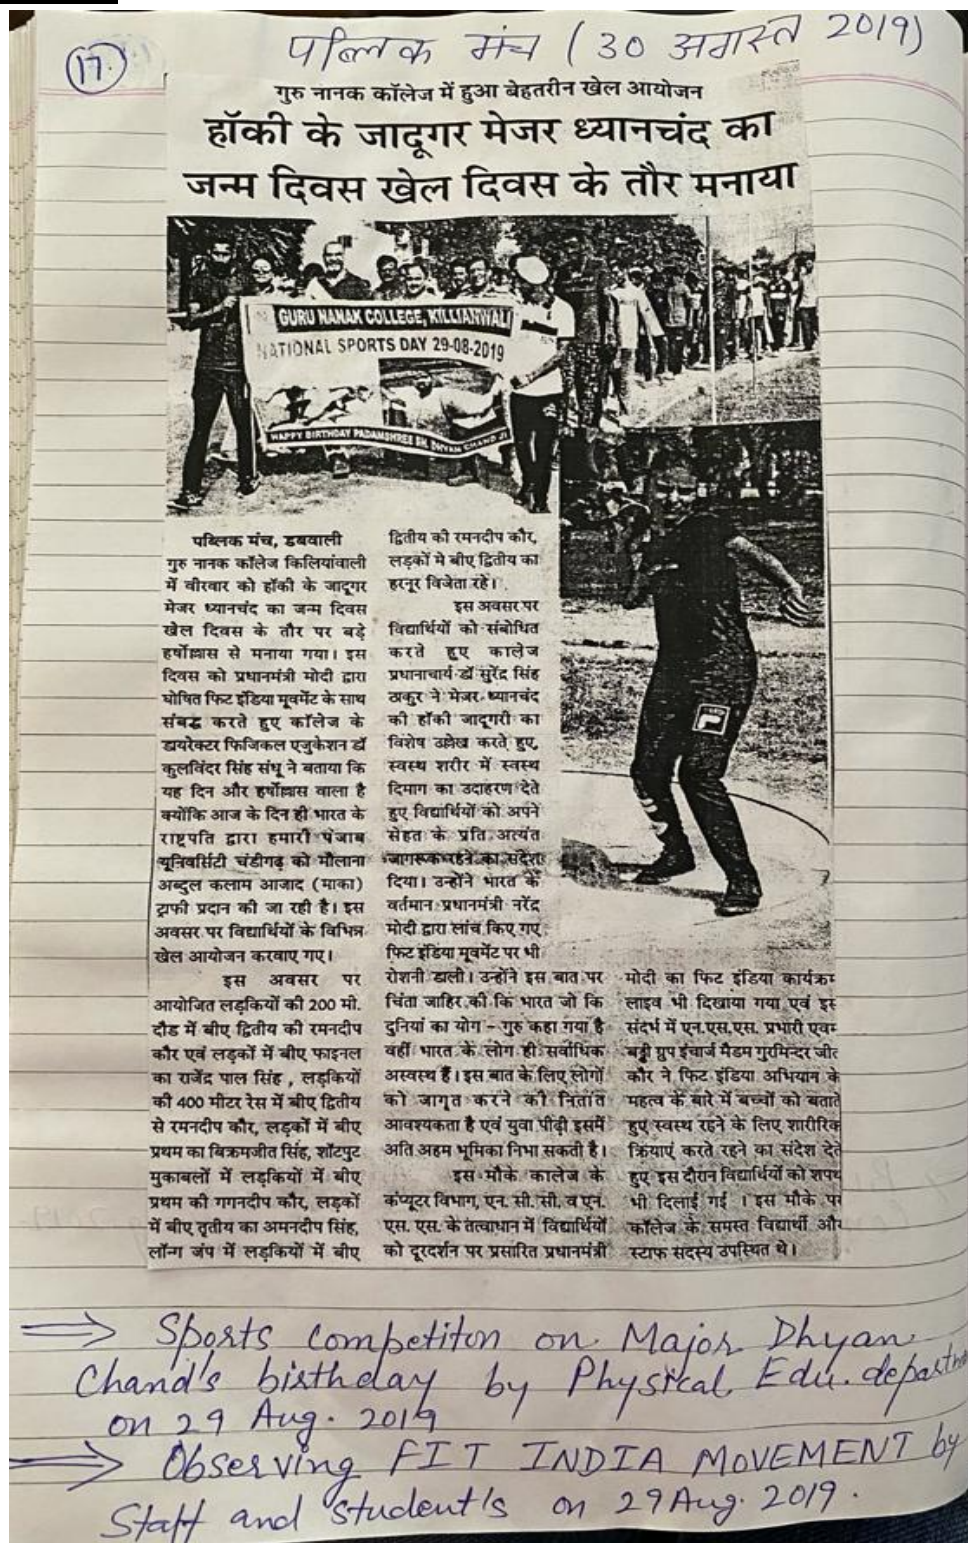 17.
पब्लिक मंच (30 अगस्त 2019)
गुरु नानक कॉलेज में हुआ बेहतरीन खेल आयोजन
हॉकी के जादूगर मेजर ध्यानचंद का
जन्म दिवस खेल दिवस के तौर मनाया
GURU NANAK COLLEGE, KILLIANWALI
NATIONAL SPORTS DAY 29-08-2019
HAPPY BIRTHDAY PADAMSHREE SH. DHYAN CHAND JI
FILA
पब्लिक मंच, डबवाली
गुरु नानक कॉलेज किलियांवाली
में वीरवार को हॉकी के जादूगर
मेजर ध्यानचंद का जन्म दिवस
खेल दिवस के तौर पर बड़े
हर्षोल्लास से मनाया गया। इस
दिवस को प्रधानमंत्री मोदी द्वारा
घोषित फिट इंडिया मूवमेंट के साथ
संबद्ध करते हुए कॉलेज के
डायरेक्टर फिजिकल एजुकेशन डॉ
कुलविंदर सिंह संधू ने बताया कि
यह दिन और हर्षोल्लास वाला है
क्योंकि आज के दिन ही भारत के
राष्ट्रपति द्वारा हमारी पंजाब
यूनिवर्सिटी चंडीगढ़ को मौलाना
अब्दुल कलाम आजाद (माका)
ट्राफी प्रदान की जा रही है। इस
अवसर पर विद्यार्थियों के विभिन्न
खेल आयोजन करवाए गए।
इस अवसर पर
आयोजित लड़कियों की 200 मी.
दौड में बीए द्वितीय की रमनदीप
कौर एवं लड़कों में बीए फाइनल
का राजेंद्र पाल सिंह , लड़कियों
की 400 मीटर रेस में बीए द्वितीय
से रमनदीप कौर, लड़कों में बीए
प्रथम का बिक्रमजीत सिंह, शॉटपुट
मुकाबलों में लड़कियों में बीए
प्रथम की गगनदीप कौर, लड़कों
में बीए तृतीय का अमनदीप सिंह,
लॉन्ग जंप में लड़कियों में बीए
द्वितीय की रमनदीप कौर,
लड़कों मे बीए द्वितीय का
हरनूर विजेता रहे।
इस अवसर पर
विद्यार्थियों को संबोधित
करते हुए कालेज
प्रधानाचार्य डॉ सुरेंद्र सिंह
ठाकुर ने मेजर ध्यानचंद
की हॉकी जादूगरी का
विशेष उल्लेख करते हुए,
स्वस्थ शरीर में स्वस्थ
दिमाग का उदाहरण देते
हुए विद्यार्थियों को अपने
सेहत के प्रति अत्यंत
जागरूक रहने का संदेश
दिया। उन्होंने भारत के
वर्तमान प्रधानमंत्री नरेंद्र
मोदी द्वारा लांच किए गए
फिट इंडिया मूवमेंट पर भी
रोशनी डाली। उन्होंने इस बात पर
चिंता जाहिर की कि भारत जो कि
दुनियां का योग - गुरु कहा गया है
वहीं भारत के लोग ही सर्वाधिक
अस्वस्थ हैं। इस बात के लिए लोगों
को जागृत करने की नितांत
आवश्यकता है एवं युवा पीढ़ी इसमें
अति अहम भूमिका निभा सकती है।
इस मौके कालेज के
कंप्यूटर विभाग, एन. सी. सी. व एन.
एस. एस. के तत्वाधान में विद्यार्थियों
को दूरदर्शन पर प्रसारित प्रधानमंत्री
मोदी का फिट इंडिया कार्यक्रम
लाइव भी दिखाया गया एवं इस
संदर्भ में एन.एस.एस. प्रभारी एवम
बड्डी ग्रुप इंचार्ज मैडम गुरमिन्दर जीत
कौर ने फिट इंडिया अभियान के
महत्व के बारे में बच्चों को बताते
हुए स्वस्थ रहने के लिए शारीरिक
क्रियाएं करते रहने का संदेश देते
हुए इस दौरान विद्यार्थियों को शपथ
भी दिलाई गई । इस मौके पर
कॉलेज के समस्त विद्यार्थी और
स्टाफ सदस्य उपस्थित थे।
⇒ Sports Competiton on Major Dhyan
Chand's birthday by Physical Edu. departm
on 29 Aug. 2019
⇒ Observing FIT INDIA MOVEMENT by
Staff and student's on 29 Aug. 2019.